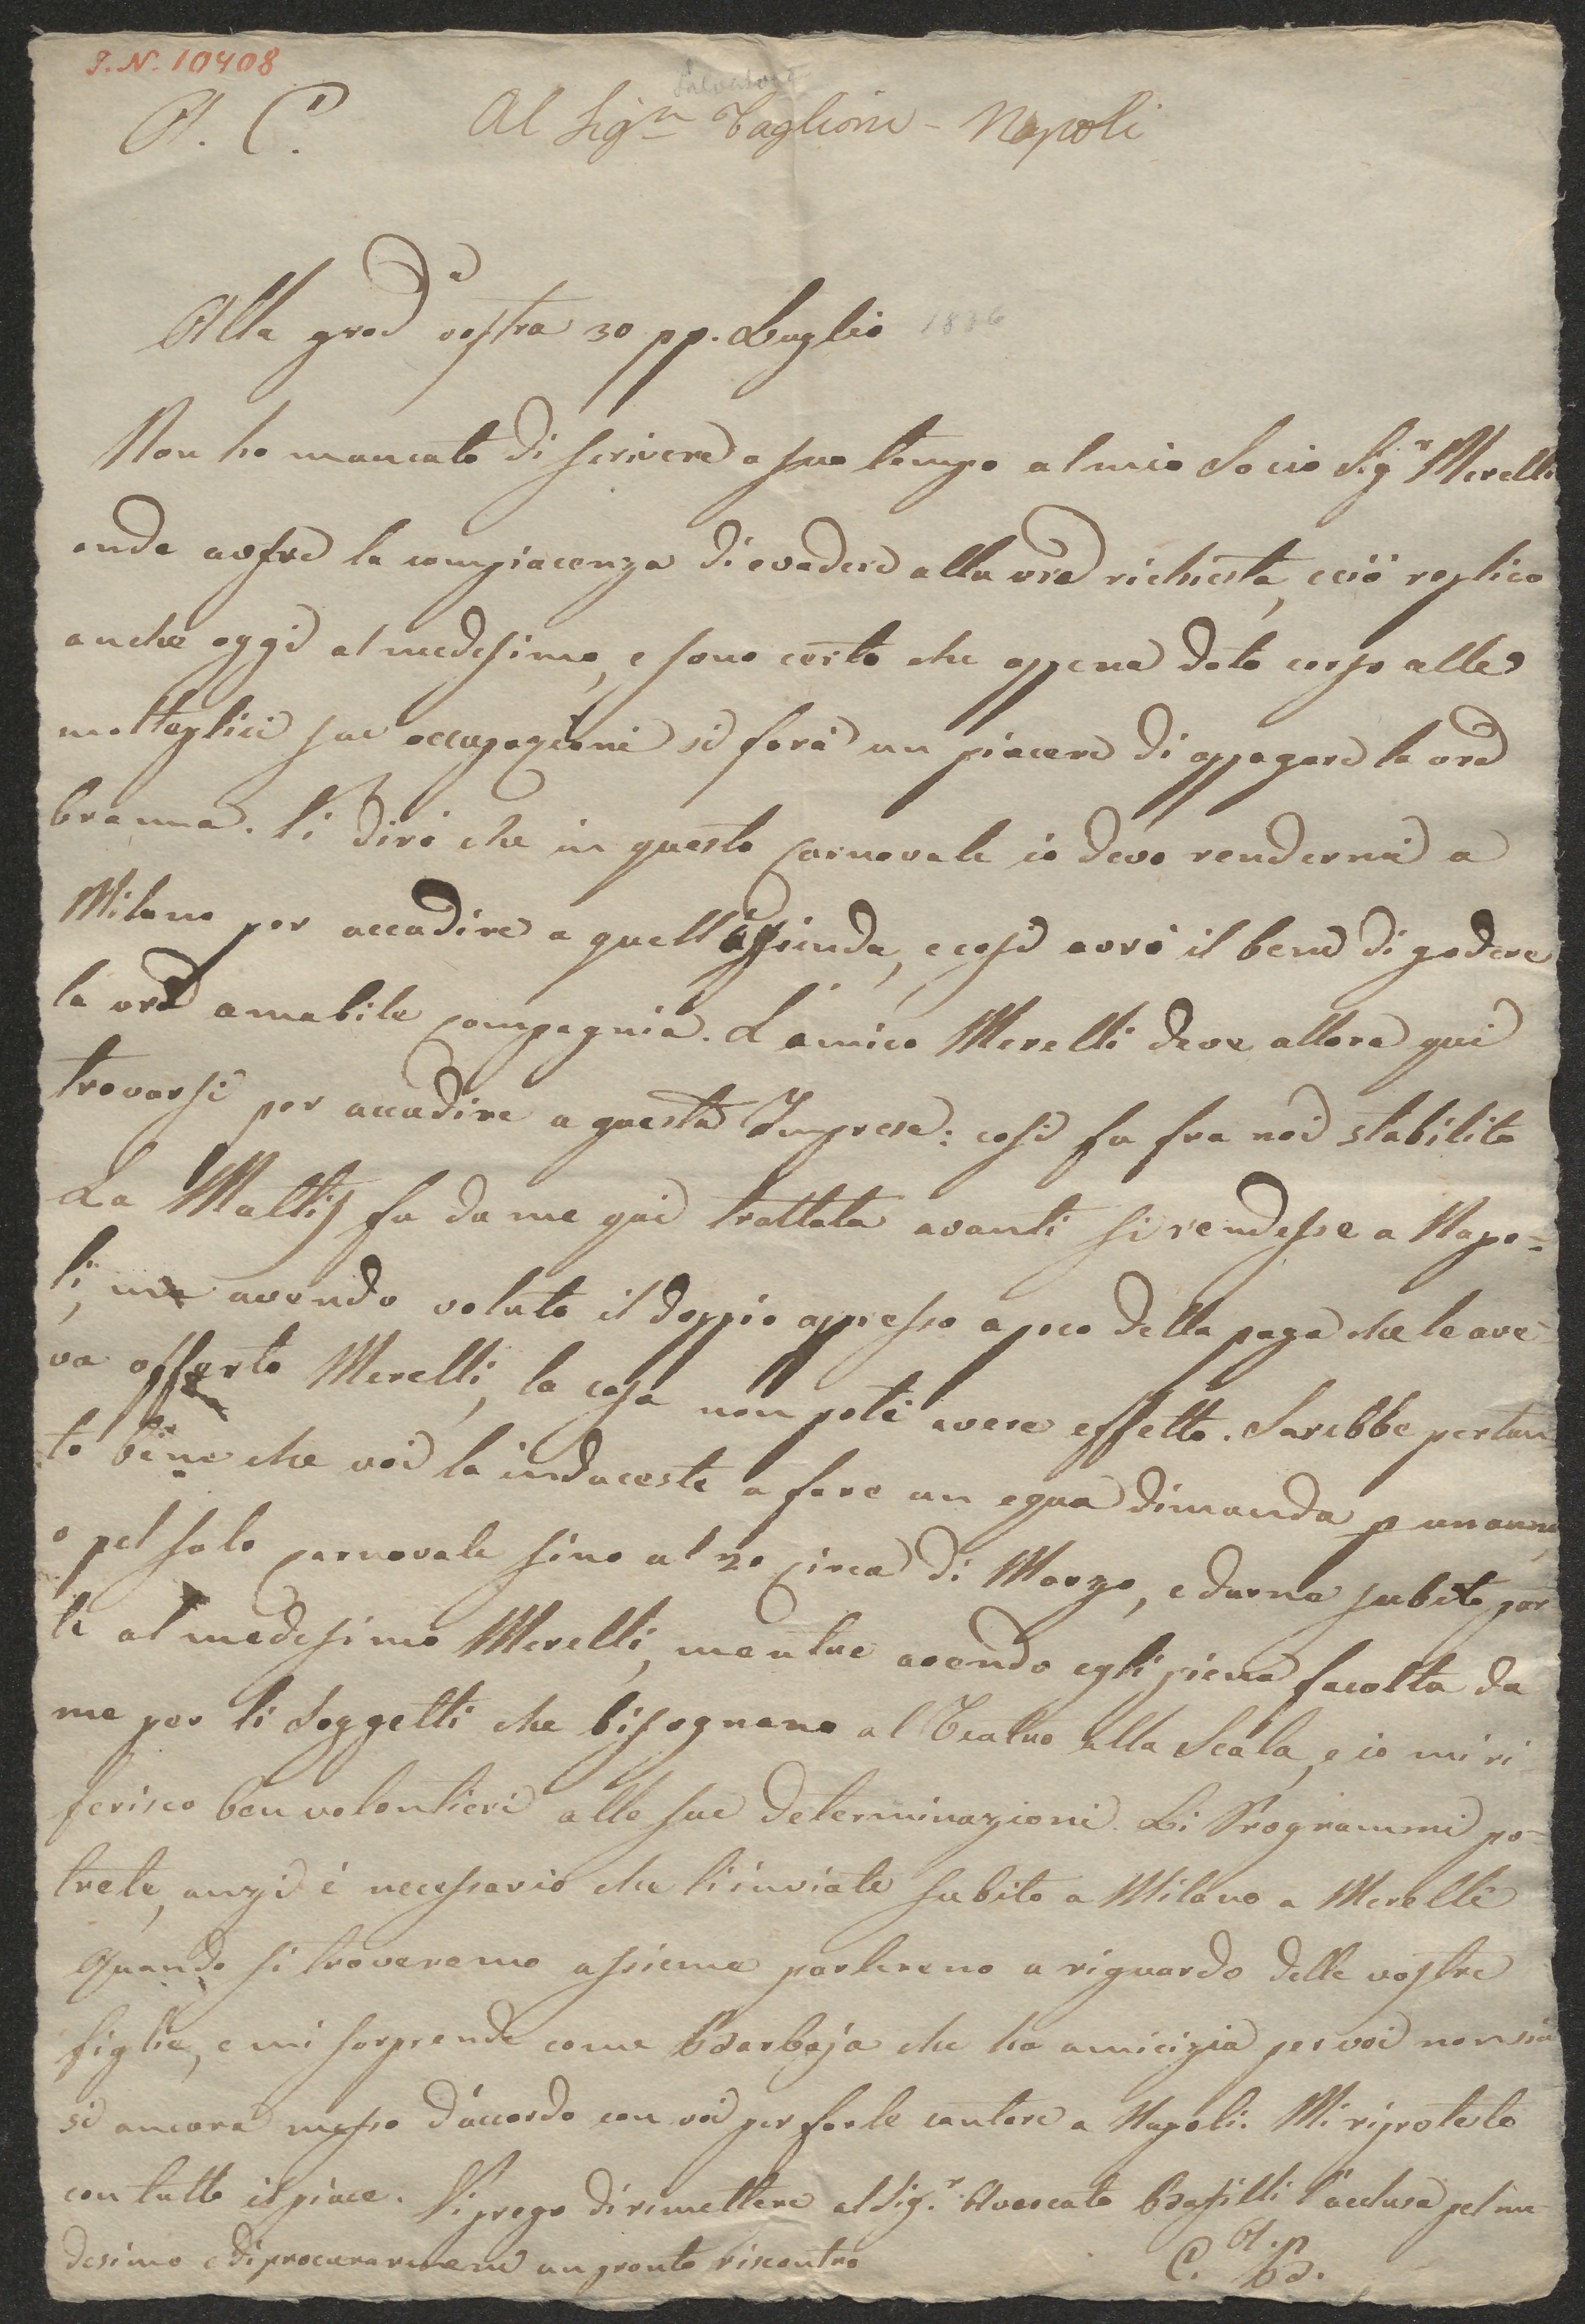 I.N. 10408
A. C. Al Sigr Salvatore Taglioni - Napoli
Alla grad.a vostra 30 pp. Luglio 1836
Non ho mancato di scrivere a suo tempo al mio Socio Sigr Merelli
onde avesse la compiacenza di evadere alla vra richiesta, e ciò replico
anche oggi al medesimo, e sono certo che appena dato corso alle
molteplici sue occupazioni si farà un piacere di appagare la vra
brama. Vi dirò che in questo Carnovale io devo rendermi a
Milano per accudire a quell'Azienda, e così avrò il bene di godere
la vra amabile compagnia. L'amico Merelli deve allora qui
trovarsi per accudire a questa Impresa: così fu fra noi stabilito
La Mattis fu da me qui trattata avanti si rendesse a Napo=
li, ma avendo voluto il doppio appresso a poco della paga che le ave
va offerto Merelli, la cosa non potè avere effetto. Sarebbe pertan
to bene che voi la induceste a fare un equa dimanda p un anno
o pel solo carnovale sino al 20 circa di Marzo, e darne subito par
te al medesimo Merelli, mentre avendo egli piena facolta da
me per li Soggetti che bisognano al Teatro alla Scala, e io mi ri
ferisco ben volontieri alle sue determinazioni. Li Programmi po=
trete, anzi è necessario che li inviate subito a Milano a Merelli
Quando si troveremo assieme parleremo a riguardo delle vostre
figlie, e mi sorprende come Barbaja che ha amicizia per voi non sia
si ancora messo d'accordo con voi per farle cantare a Napoli. Mi riprotesto
con tutto il piace. Vi prego di rimettere al Sigr. Avvocato Basilli l'acclusa pel me
desimo e di procurarmene un pronto riscontro
A. p
C. B.